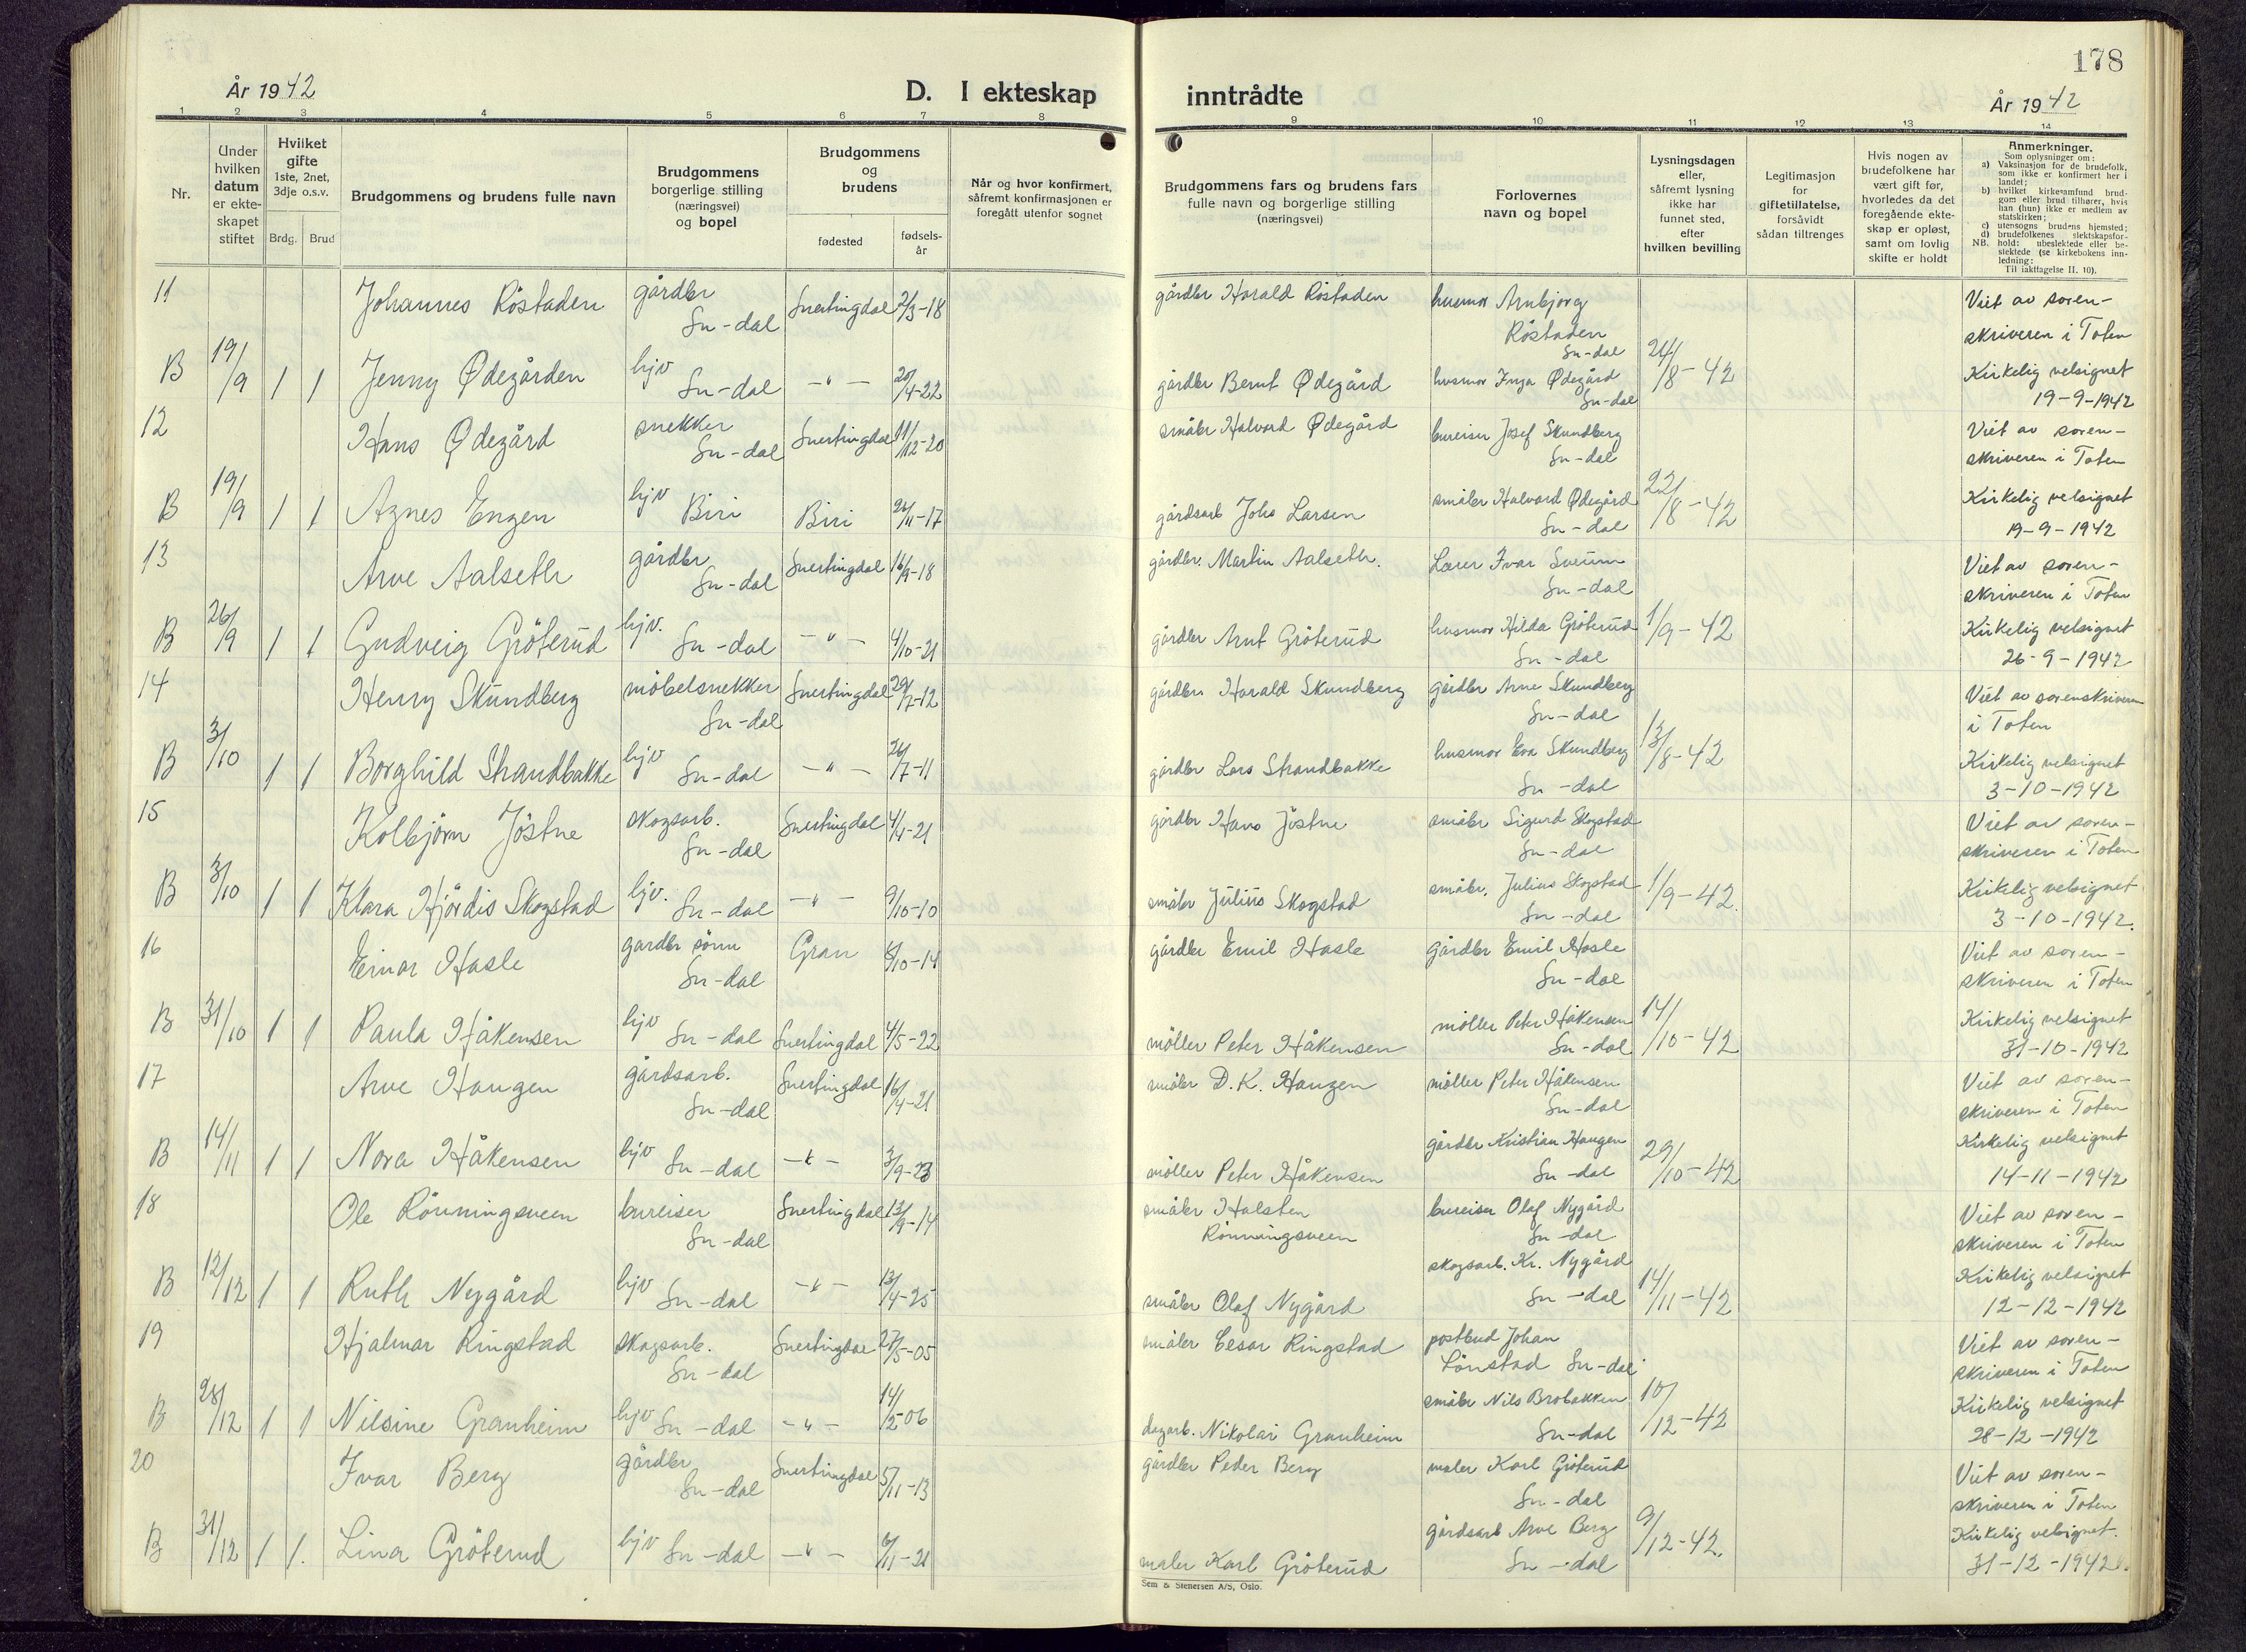 178
År 1942
D. I ekteskap
inntrådte
År 1942
1 2 3 4 5 6 7 8
9 10 11 12 13 14
Nr.
Under hvilken datum er ekteskapet stiftet
Hvilket gifte 1ste, 2net, 3dje o.s.v.
Brdg. Brud
Brudgommens og brudens fulle navn
Brudgommens borgerlige stilling (næringsvei) og bopel
Brudgommens og brudens
fødested
fødsels-år
Når og hvor konfirmert, såfremt konfirmasjonen er foregått utenfor sognet
Brudgommens fars og brudens fars fulle navn og borgerlige stilling (næringsvei)
Forlovernes navn og bopel
Lysningsdagen eller, såfremt lysning ikke har funnet sted, efter hvilken bevilling
Legitimasjon for giftetillatelse, forsåvidt sådan tiltrenges
Hvis nogen av brudefolkene har vært gift før, hvorledes da det foregående ekteskap er opløst, samt om lovlig skifte er holdt
Anmerkninger.
Som oplysninger om:
a) Vaksinasjon for de brudefolk, som ikke er konfirmert her i landet;
b) hvilket kirkesamfund brudgom eller brud tilhører, hvis han (hun) ikke er medlem av statskirken;
c) utensogns brudens hjemsted;
d) brudefolkenes slektskapsforhold: ubeslektede eller beslektede (se kirkebokens innledning:
NB. Til iakttagelse II. 10).
11 Johannes Röstaden gårdbr Sn-dal Snertingdal 2/3-18 gårdbr Harald Röstaden husmor Arnbjørg Röstaden Sn-dal Viet av soren-
skriveren i Toten
B 19/9 1 1 Jenny Ødegården hjv Sn-dal -"- 20/4-22 gårdbr Bernt Ødegård husmor Inga Ødegård Sn-dal 24/8-42 Kirkelig velsignet
19-9-1942
12 Hans Ødegård snekker Sn-dal Snertingdal 11/12-20 småbr Halvard Ødegård bureiser Josef Skundberg Sn-dal Viet av soren-
skriveren i Toten
B 19/9 1 1 Agnes Engen hjv Biri Biri 26/11-17 gårdsarb Johs Larsen småbr Halvard Ødegård Sn-dal 22/8-42 Kirkelig velsignet
19-9-1942
13 Arve Aalseth gårdbr Sn-dal Snertingdal 16/9-18 gårdbr. Martin Aalseth. Lærer Ivar Sveum Sn-dal Viet av soren-
skriveren i Toten
B 26/9 1 1 Gudveig Gröterud hjv. Sn-dal -"- 4/10-21 gårdbr Arnt Gröterud husmor Hilda Gröterud Sn-dal 1/9-42 Kirkelig velsignet
26-9-1942
14 Henry Skundberg möbelsnekker Sn-dal Snertingdal 29/7-12 gårdbr. Harald Skundberg gårdbr Arne Skundberg Sn-dal Viet av sorenskriveren
i Toten
B 3/10 1 1 Borghild Strandbakke hjv Sn-dal -"- 26/7-11 gårdbr Lars Strandbakke husmor Eva Skundberg Sn-dal 13/8-42 Kirkelig velsignet
3-10-1942
15 Kolbjörn Jöstne skogsarb. Sn-dal Snertingdal 4/4-21 gårdbr Hans Jöstne småbr Sigurd Skogstad Sn-dal Viet av soren-
skriveren i Toten
B 3/10 1 1 Klara Hjördis Skogstad hjv. Sn-dal -"- 9/10-10 småbr Julius Skogstad småbr. Julius Skogstad Sn-dal 1/9-42. Kirkelig velsignet
3-10-1942.
16 Einar Hasle gardbr sönn Sn-dal Gran /10-14 gårdbr Emil Hasle gårdbr Emil Hasle Sn-dal Viet av soren-
skriveren i Toten
B 31/10 1 1 Paula Håkensen hjv Sn-dal Snertingdal 4/5-22 möller Peter Håkensen möller Peter Håkensen Sn-dal 14/10-42 Kirkelig velsignet
31-10-1942
17 Arve Haugen gårdsarb. Sn-dal Snertingdal 16/4-21 småbr D.K. Haugen möller Peter Håkensen Sn-dal Viet av soren-
skriveren i Toten
B 14/11 1 1 Nora Håkensen hjv Sn-dal -"- 3/9-23 möller Peter Håkensen gårdbr Kristian Haugen Sn-dal 29/10-42 Kirkelig velsignet
14-11-1942
18 Ole Rönningsveen bureiser Sn-dal Snertingdal 13/9-14 småbr Halsten Rönningsveen bureiser Olaf Nygård Sn-dal Viet av soren-
skriveren i Toten
B 12/12 1 1 Ruth Nygård hjv Sn-dal -"- 13/4-25 småbr Olaf Nygård skogsarb. Kr. Nygård Sn-dal 14/11-42 Kirkelig velsignet
12-12-1942
19 Hjalmar Ringstad skogsarb. Sn-dal Snertingdal 27/5-05 småbr Cesar Ringstad postbud Johan Lönstad Sn-dal Viet av soren-
skriveren i Toten
B 28/12 1 1 Nilsine Granheim hjv Sn-dal -"- 14/2-06 dagarb. Nikolai Granheim småbr Nils Brobakken Sn-dal 10/12-42 Kirkelig velsignet
28-12-1942
20 Ivar Berg gårdbr Sn-dal Snertingdal 5/11-13 gårdbr Peder Berg maler Karl Gröterud Sn-dal Viet av soren-
skriveren i Toten
B 31/12 1 1. Lina Gröterud hjv Sn-dal -"- /11-21 maler Karl Gröterud gårdsarb Arve Berg Sn-dal 9/12-42. Kirkelig velsignet.
31-12-1942.
Sem & Stenersen A/S, Oslo.